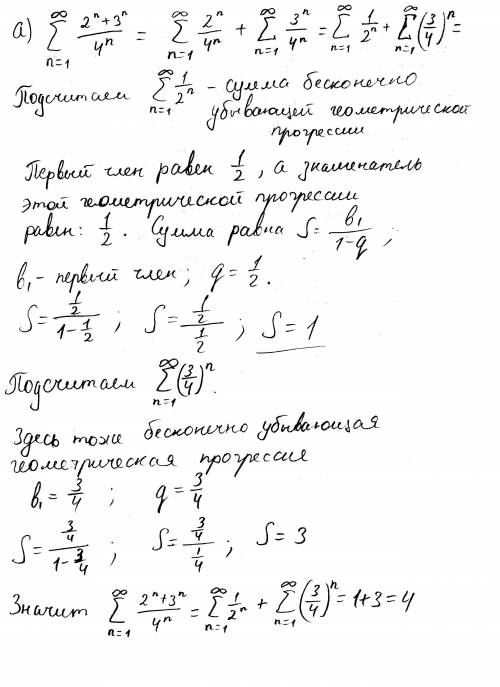 а) ∑_{n=1}^{∞} (2ⁿ+3ⁿ)/4ⁿ = ∑_{n=1}^{∞} 2ⁿ/4ⁿ + ∑_{n=1}^{∞} 3ⁿ/4ⁿ = ∑_{n=1}^{∞} 1/2ⁿ + ∑_{n=1}^{∞} (3/4)ⁿ =
Подсчитаем ∑_{n=1}^{∞} 1/2ⁿ – сумма бесконечно
убывающей геометрической
прогрессии
Первый член равен 1/2, а знаменатель
этой геометрической прогрессии
равен: 1/2. Сумма равна S = b₁/(1-q);
b₁ - первый член; q = 1/2.
S = (1/2)/(1-1/2); S = (1/2)/(1/2); S = 1
Подсчитаем ∑_{n=1}^{∞} (3/4)ⁿ.
Здесь тоже бесконечно убывающая
геометрическая прогрессия
b₁ = 3/4; q = 3/4
S = (3/4)/(1-3/4); S = (3/4)/(1/4); S = 3
Значит ∑_{n=1}^{∞} (2ⁿ+3ⁿ)/4ⁿ = ∑_{n=1}^{∞} 1/2ⁿ + ∑_{n=1}^{∞} (3/4)ⁿ = 1+3 = 4